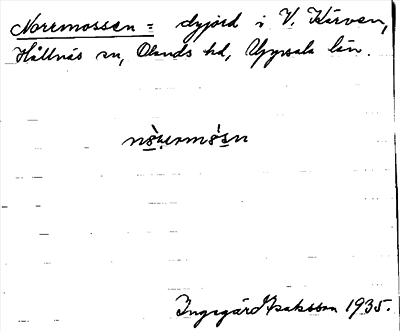 Norrmossen = dyjord i V. Kärven,
Hållnäs sn, Olands hd, Uppsala län.
Ingegärd Isaksson 1935.